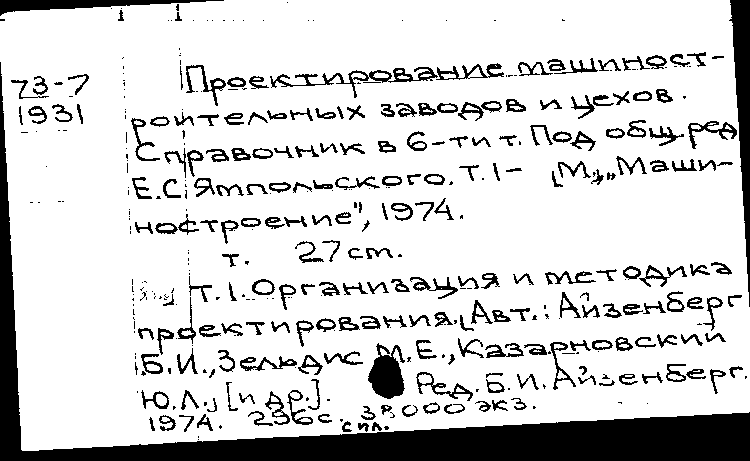 73-7
1931
Проектирование машиност-
роительных заводов и цехов.
Справочник в 6-ти т. Под общ. ред.
Е.С. Ямпольского. Т.1- [М.], "Маши-
ностроение", 1974.
т. 27 cm.
Т.1. Организация и методика
проектирования. [Авт.: Айзенберг
Б.И., Зельдис М.Е., Казарновский
Ю.Л., [и др.]. Ред. Б.И. Айзенберг.
1974. 296 с. с ил. 38000 экз.